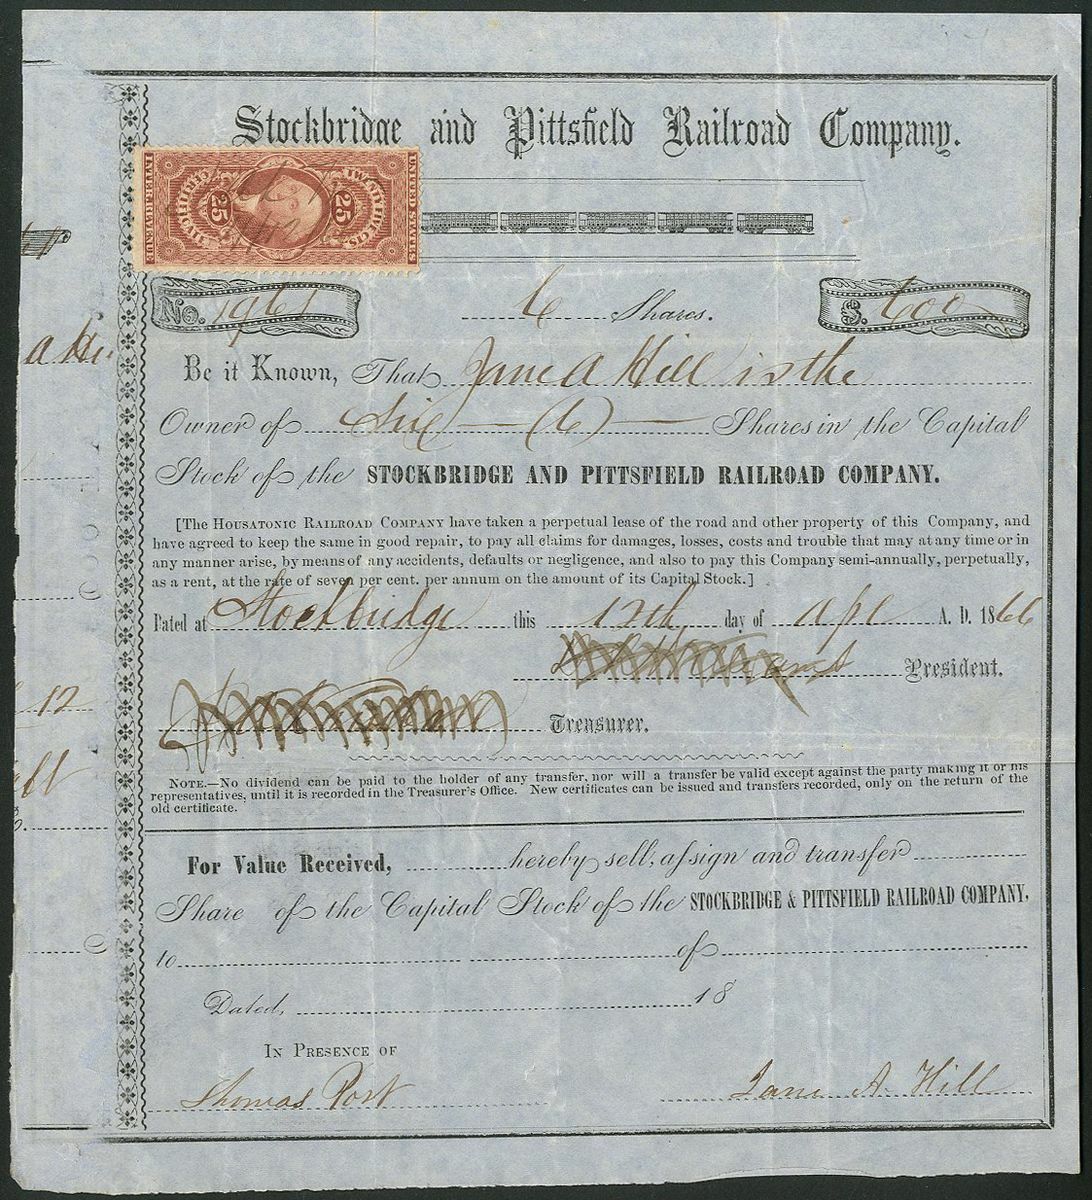 Stockbridge and Pittsfield Railroad Company.
UNITED STATES
TWENTY FIVE CTS.
25
25
CERTIFICATE
INTER. REVENUE
No. 1961
6 Shares.
$. 600
Be it Known, That Jane A Hill is the
Owner of Six — (6) — Shares in the Capital
Stock of the STOCKBRIDGE AND PITTSFIELD RAILROAD COMPANY.
[The HOUSATONIC RAILROAD COMPANY have taken a perpetual lease of the road and other property of this Company, and
have agreed to keep the same in good repair, to pay all claims for damages, losses, costs and trouble that may at any time or in
any manner arise, by means of any accidents, defaults or negligence, and also to pay this Company semi-annually, perpetually,
as a rent, at the rate of seven per cent. per annum on the amount of its Capital Stock.]
Dated at Stockbridge this 12th day of Apl A. D. 1866
President.
Treasurer.
NOTE.—No dividend can be paid to the holder of any transfer, nor will a transfer be valid except against the party making it or his
representatives, until it is recorded in the Treasurer's Office. New certificates can be issued and transfers recorded, only on the return of the
old certificate.
For Value Received, hereby sell, assign and transfer
Share of the Capital Stock of the STOCKBRIDGE & PITTSFIELD RAILROAD COMPANY,
to of
Dated, 18
IN PRESENCE OF
Thomas Post
Jane A. Hill
12